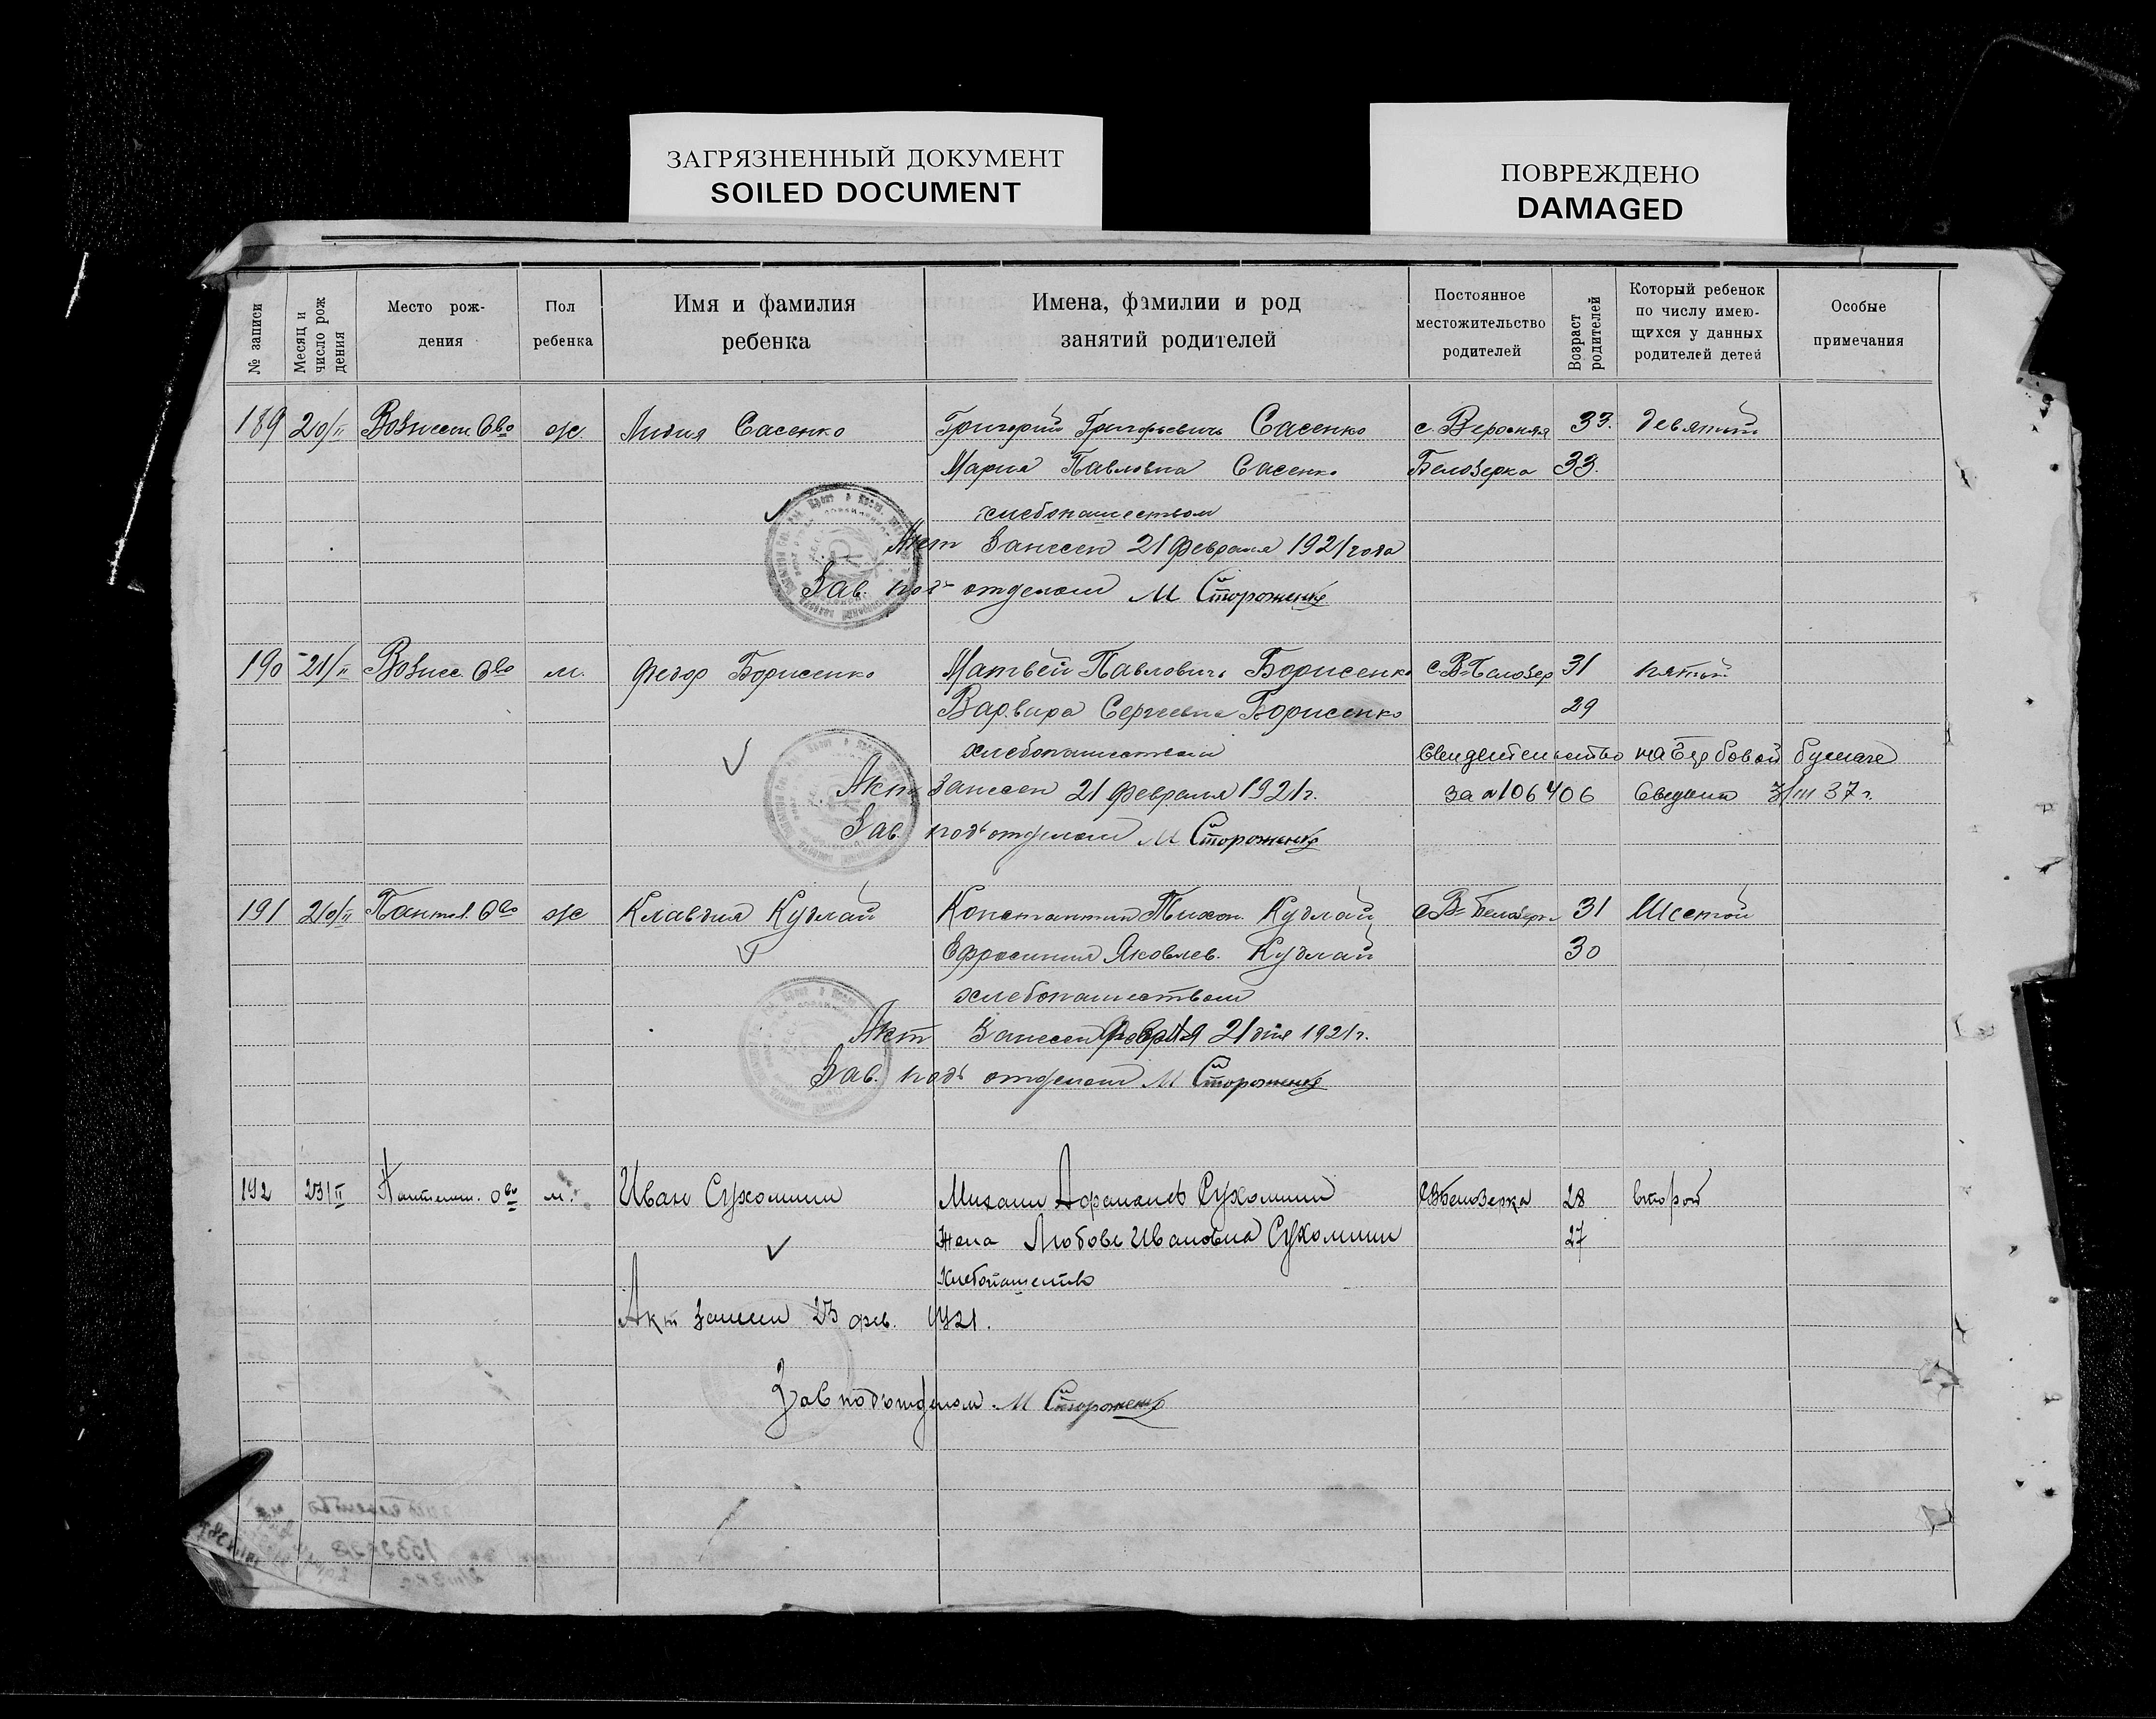 ЗАГРЯЗНЕННЫЙ ДОКУМЕНТ
SOILED DOCUMENT
ПОВРЕЖДЕНО
DAMAGED
№ записи
Месяц и число рож дения
Место рож-дения
Пол ребенка
Имя и фамилия ребенка
Имена, фамилии и род занятий родителей
Постоянное местожительство родителей
Возраст родителей
Который ребенок по числу имею-щихся у данных родителей детей
Особые примечания
189 20/II Вознесен. О-во ж. Лидия Сасенко Григорий Григорьевичъ Сасенко с. Верхняя 33. девятый
Мария Павловна Сасенко Белозерка 33.
хлебопашеством
Акт Занесен 21 февраля 1921 года
Зав. подъ отделом М Стороженко
190 21/II Вознес. О-во м. Федор Борисенко Матвей Павловичъ Борисенко с. В-Белозер 31 пятый
Варвара Сергеевна Борисенко 29
хлебопашеством Свидетельство на гербовой бумаге
Акт Занесен 21 февраля 1921 г. за № 106406 3/III 37 г.
Зав. подъ отделом М Стороженко
191 20/II Пантел. О-во ж Клавдия Кудлай Константин Тихон. Кудлай с. В-Белозерк 31 Шестой
Ефросиния Яковлев. Кудлай 30
хлебопашеством
Акт Занесен февраля 21 дня 1921 г.
Зав. подъ отделом М Стороженко
192 23/II Пантелем. О-во м. Иван Сухомлин Михаил Афанасьев Сухомлин с В Белозерка 28 второй
Жена Любовь Ивановна Сухомлин 27
Хлебопашество
Акт Занесен 23 фев. 1921.
Зав подъотделом М Стороженко